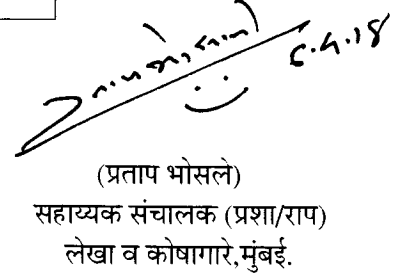 (प्रताप भोसले)
सहाय्यक संचालक (प्रशा/राप)
लेखा व कोषागारे,मुंबई.